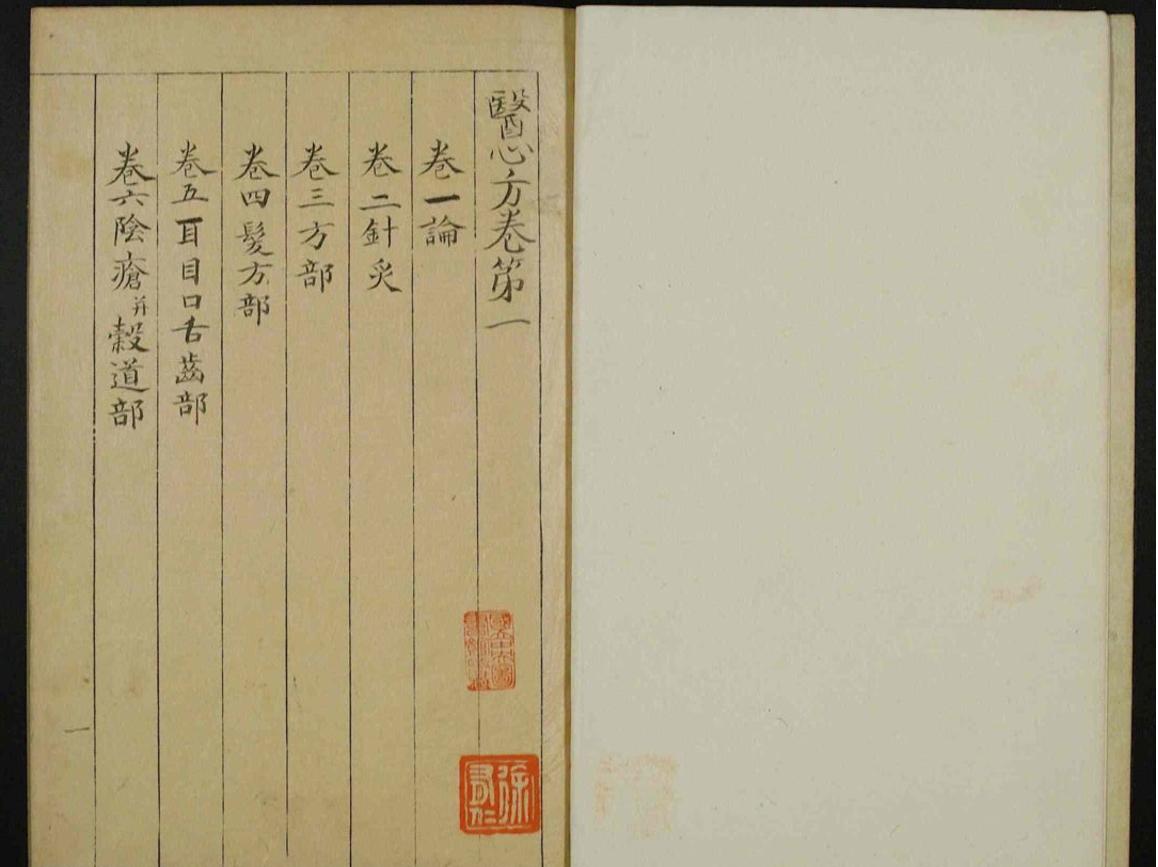 醫心方卷第一
卷一論
卷二針灸
卷三方部
卷四髮方部
卷五耳目口舌齒部
卷六陰瘡并穀道部
一